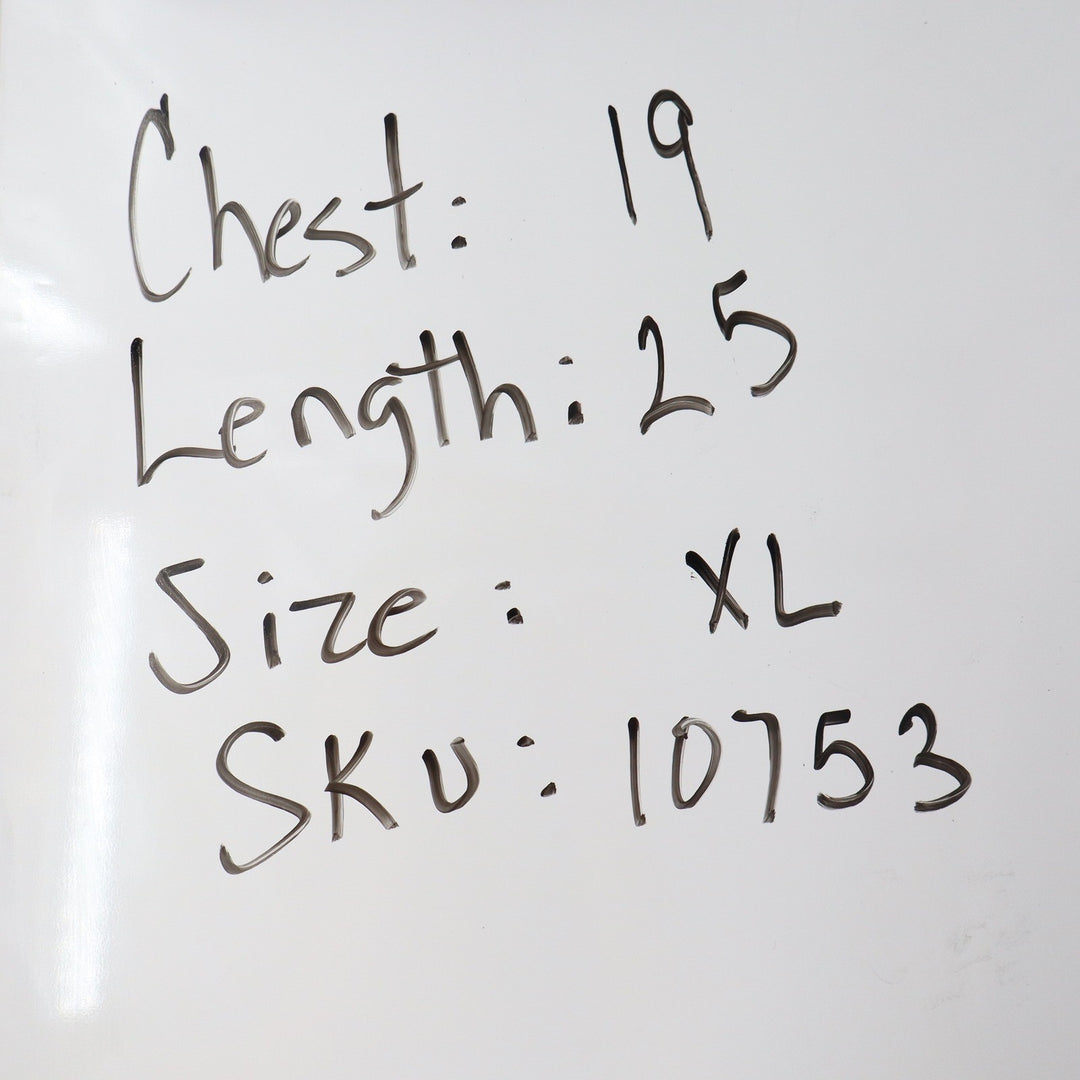 Chest: 19
Length: 25
Size: XL
SKU: 10753